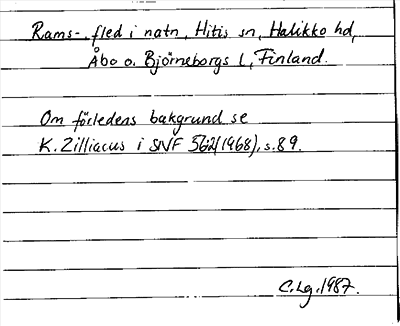 Rams-, fled i natn, Hitis sn, Halikko hd,
Åbo o. Björneborgs L, Finland.
Om förledens bakgrund se
K. Zilliacus i SNF 56:2(1968), s. 89.
C.Lg. 1987.